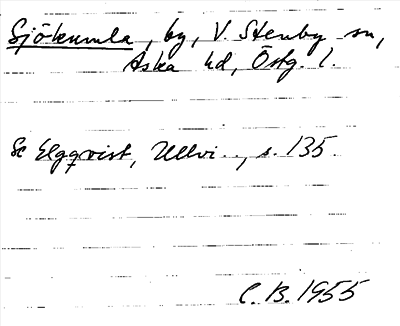 Sjökumla, by, V. Stenby sn,
Aska hd, Östg. l.
Se Elgqvist, Ullvi.., s. 135.
C.B. 1955